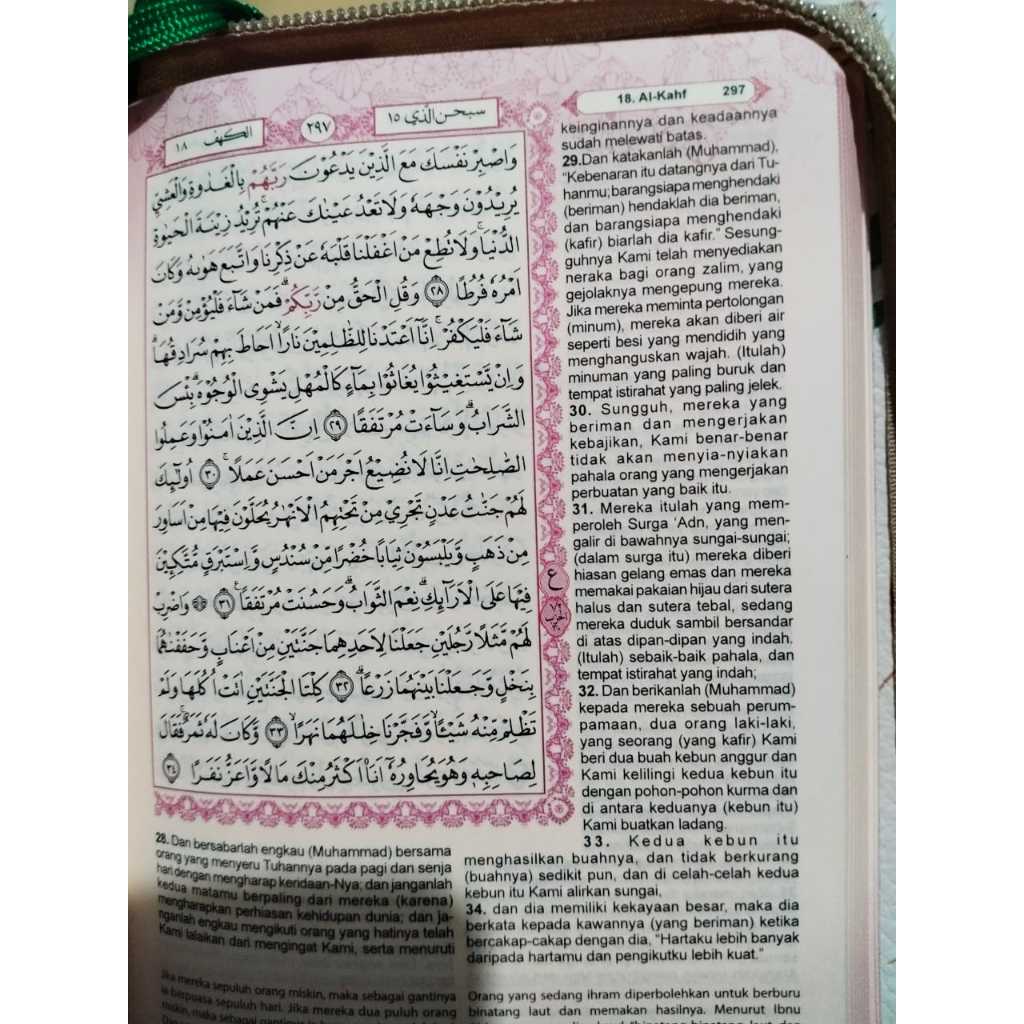 الكهف ١٨
٢٩٧
سبحن الذي ١٥
18. Al-Kahf
297
وَاصْبِرْ نَفْسَكَ مَعَ الَّذِيْنَ يَدْعُوْنَ رَبَّهُمْ بِالْغَدٰوةِ وَالْعَشِيِّ
يُرِيْدُوْنَ وَجْهَهٗ وَلَا تَعْدُ عَيْنٰكَ عَنْهُمْۚ تُرِيْدُ زِيْنَةَ الْحَيٰوةِ
الدُّنْيَاۚ وَلَا تُطِعْ مَنْ اَغْفَلْنَا قَلْبَهٗ عَنْ ذِكْرِنَا وَاتَّبَعَ هَوٰىهُ وَكَانَ
اَمْرُهٗ فُرُطًا ٢٨ وَقُلِ الْحَقُّ مِنْ رَّبِّكُمْۗ فَمَنْ شَاۤءَ فَلْيُؤْمِنْ وَّمَنْ
شَاۤءَ فَلْيَكْفُرْۚ اِنَّآ اَعْتَدْنَا لِلظّٰلِمِيْنَ نَارًاۙ اَحَاطَ بِهِمْ سُرَادِقُهَاۗ
وَاِنْ يَّسْتَغِيْثُوْا يُغَاثُوْا بِمَاۤءٍ كَالْمُهْلِ يَشْوِى الْوُجُوْهَۗ بِئْسَ
الشَّرَابُۗ وَسَاۤءَتْ مُرْتَفَقًا ٢٩ اِنَّ الَّذِيْنَ اٰمَنُوْا وَعَمِلُوا
الصّٰلِحٰتِ اِنَّا لَا نُضِيْعُ اَجْرَ مَنْ اَحْسَنَ عَمَلًاۚ ٣٠ اُولٰۤىِٕكَ
لَهُمْ جَنّٰتُ عَدْنٍ تَجْرِيْ مِنْ تَحْتِهِمُ الْاَنْهٰرُ يُحَلَّوْنَ فِيْهَا مِنْ اَسَاوِرَ
مِنْ ذَهَبٍ وَّيَلْبَسُوْنَ ثِيَابًا خُضْرًا مِّنْ سُنْدُسٍ وَّاِسْتَبْرَقٍ مُّتَّكِـِٕيْنَ
فِيْهَا عَلَى الْاَرَاۤىِٕكِۗ نِعْمَ الثَّوَابُۗ وَحَسُنَتْ مُرْتَفَقًا ٣١ ۞ وَاضْرِبْ
لَهُمْ مَّثَلًا رَّجُلَيْنِ جَعَلْنَا لِاَحَدِهِمَا جَنَّتَيْنِ مِنْ اَعْنَابٍ وَّحَفَفْنٰهُمَا
بِنَخْلٍ وَّجَعَلْنَا بَيْنَهُمَا زَرْعًاۗ ٣٢ كِلْتَا الْجَنَّتَيْنِ اٰتَتْ اُكُلَهَا وَلَمْ
تَظْلِمْ مِّنْهُ شَيْـًٔاۙ وَّفَجَّرْنَا خِلٰلَهُمَا نَهَرًاۙ ٣٣ وَّكَانَ لَهٗ ثَمَرٌۚ فَقَالَ
لِصَاحِبِهٖ وَهُوَ يُحَاوِرُهٗٓ اَنَا۠ اَكْثَرُ مِنْكَ مَالًا وَّاَعَزُّ نَفَرًا ٣٤
ع
28. Dan bersabarlah engkau (Muhammad) bersama
orang yang menyeru Tuhannya pada pagi dan senja
hari dengan mengharap keridaan-Nya; dan janganlah
kedua matamu berpaling dari mereka (karena)
mengharapkan perhiasan kehidupan dunia; dan ja-
nganlah engkau mengikuti orang yang hatinya telah
Kami lalaikan dari mengingat Kami, serta menuruti
keinginannya dan keadaannya
sudah melewati batas.
29.Dan katakanlah (Muhammad),
“Kebenaran itu datangnya dari Tu-
hanmu; barangsiapa menghendaki
(beriman) hendaklah dia beriman,
dan barangsiapa menghendaki
(kafir) biarlah dia kafir.” Sesung-
guhnya Kami telah menyediakan
neraka bagi orang zalim, yang
gejolaknya mengepung mereka.
Jika mereka meminta pertolongan
(minum), mereka akan diberi air
seperti besi yang mendidih yang
menghanguskan wajah. (Itulah)
minuman yang paling buruk dan
tempat istirahat yang paling jelek.
30. Sungguh, mereka yang
beriman dan mengerjakan
kebajikan, Kami benar-benar
tidak akan menyia-nyiakan
pahala orang yang mengerjakan
perbuatan yang baik itu.
31. Mereka itulah yang mem-
peroleh Surga ‘Adn, yang men-
galir di bawahnya sungai-sungai;
(dalam surga itu) mereka diberi
hiasan gelang emas dan mereka
memakai pakaian hijau dari sutera
halus dan sutera tebal, sedang
mereka duduk sambil bersandar
di atas dipan-dipan yang indah.
(Itulah) sebaik-baik pahala, dan
tempat istirahat yang indah;
32. Dan berikanlah (Muhammad)
kepada mereka sebuah perum-
pamaan, dua orang laki-laki,
yang seorang (yang kafir) Kami
beri dua buah kebun anggur dan
Kami kelilingi kedua kebun itu
dengan pohon-pohon kurma dan
di antara keduanya (kebun itu)
Kami buatkan ladang.
33. Kedua kebun itu
menghasilkan buahnya, dan tidak berkurang
(buahnya) sedikit pun, dan di celah-celah kedua
kebun itu Kami alirkan sungai,
34. dan dia memiliki kekayaan besar, maka dia
berkata kepada kawannya (yang beriman) ketika
bercakap-cakap dengan dia, “Hartaku lebih banyak
daripada hartamu dan pengikutku lebih kuat.”
Jika mereka sepuluh orang miskin, maka sebagai gantinya
ia berpuasa sepuluh hari. Jika mereka dua puluh orang
miskin, maka sebagai gantinya
Orang yang sedang ihram diperbolehkan untuk berburu
binatang laut dan memakan hasilnya. Menurut Ibnu